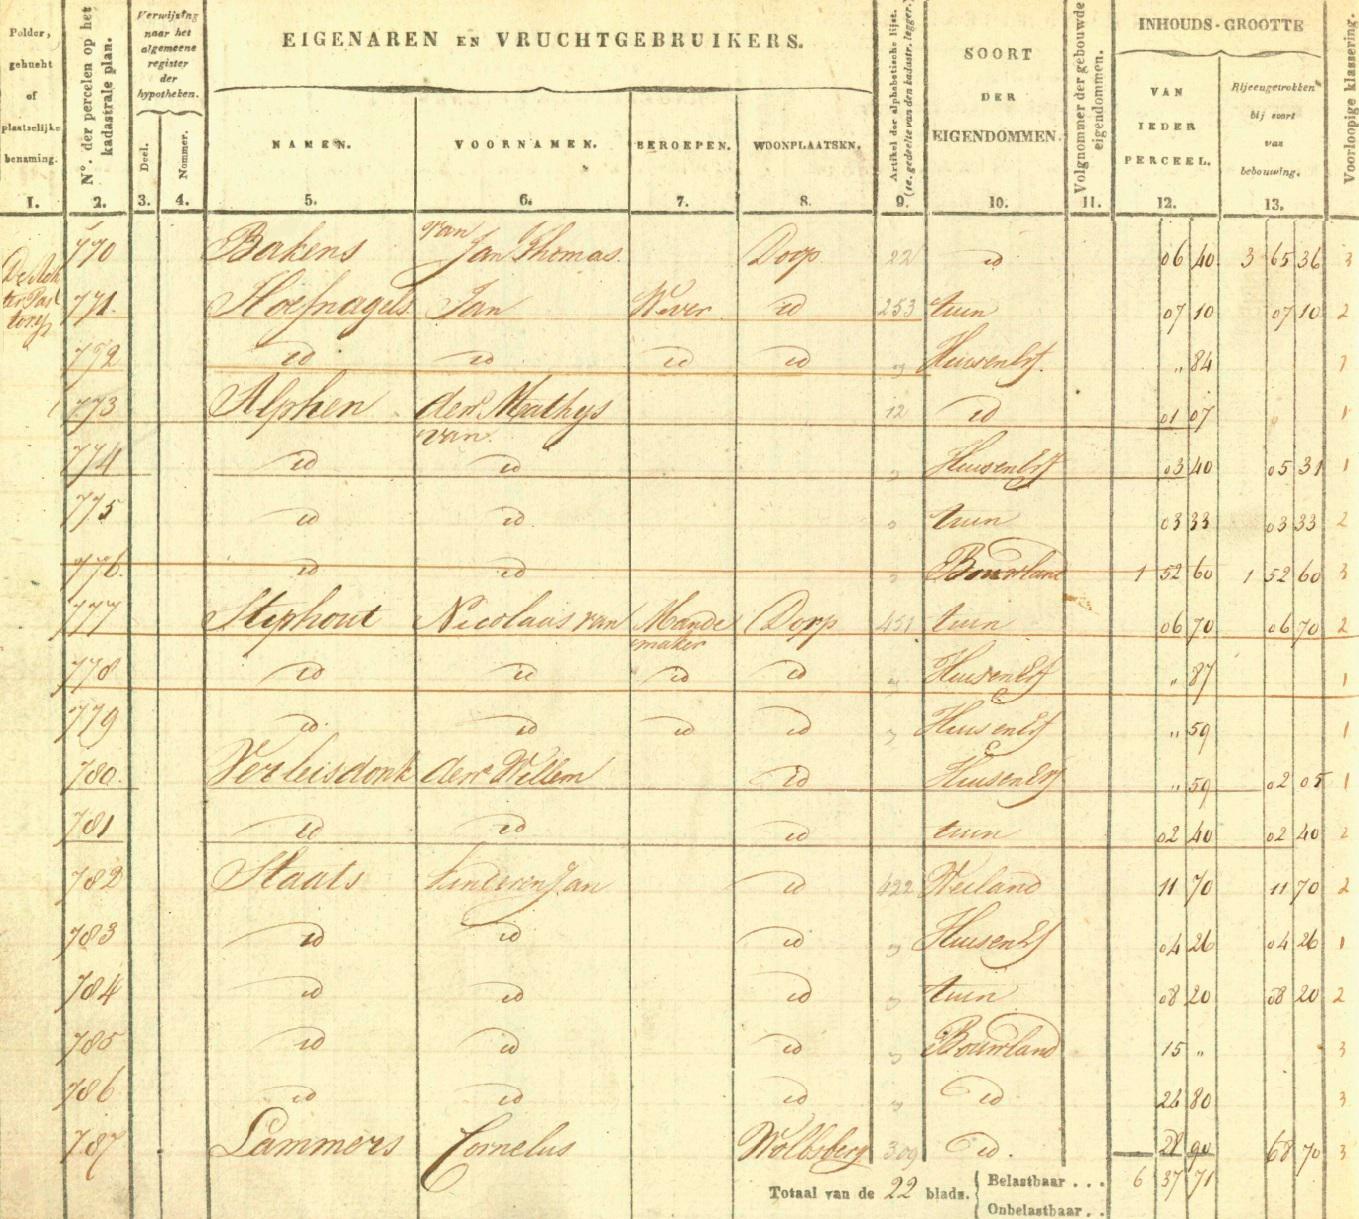 Polder, gehucht of plaatselijke benaming.
N°. der percelen op het kadastrale plan.
Verwijzing naar het algemeene register der hypotheken.
Deel.
Nommer.
EIGENAREN EN VRUCHTGEBRUIKERS.
NAMEN.
VOORNAMEN.
BEROEPEN.
WOONPLAATSEN.
Artikel der alphabetische lijst.
(1e. gedeelte van den kadastr. legger.)
SOORT DER EIGENDOMMEN.
Volgnommer der gebouwde eigendommen.
INHOUDS-GROOTTE
VAN IEDER PERCEEL.
Bijeengetrokken bij soort van bebouwing.
Voorloopige klassering.
1. 2. 3. 4. 5. 6. 7. 8. 9. 10. 11. 12. 13.
770 Bakens van Jan Thomas. Dorp 22 id 06 40 3 65 36 3
771 Hoefnagels Jan Wever id 253 tuin 07 10 07 10 2
772 id id id id Huis en Erf. " 84 1
773 Alphen den Mathys van 12 id 01 07 1
774 id id Huis en Erf 03 40 05 31 1
775 id id tuin 03 33 03 33 2
776 id id Bouwland 1 52 60 1 52 60 3
777 Stiphout Nicolaas van Mande maker Dorp 451 tuin 06 70 06 70 2
778 id id id id Huis en Erf " 87 1
779 id id id id Huis en Erf " 59 1
780 Verleisdonk den Willem id Huis en Erf " 59 02 05 1
781 id id id tuin 02 40 02 40 2
782 Staats kinderen Jan id 422 Weiland 11 70 11 70 2
783 id id id Huis en Erf 04 26 04 26 1
784 id id id tuin 08 20 08 20 2
785 id id id Bouwland 15 " 3
786 id id id id 24 80 3
787 Lammers Cornelus Wolbsberg 309 id. 28 90 68 70 3
Totaal van de 22 blads. Belastbaar . . . 6 37 71
Onbelastbaar . .